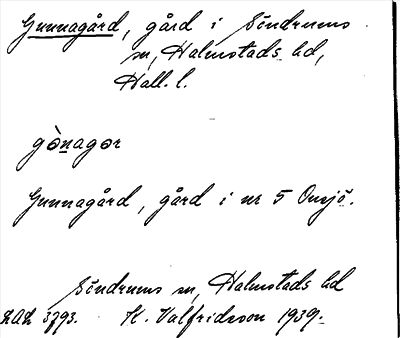 Gunnagård, gård i Söndrums
sn, Halmstads hd,
Hall. l.
gònagər
Gunnagård, gård i nr 5 Onsjö.
Söndrums sn, Halmstads hd
LAL 3793. H. Valfridsson 1939.